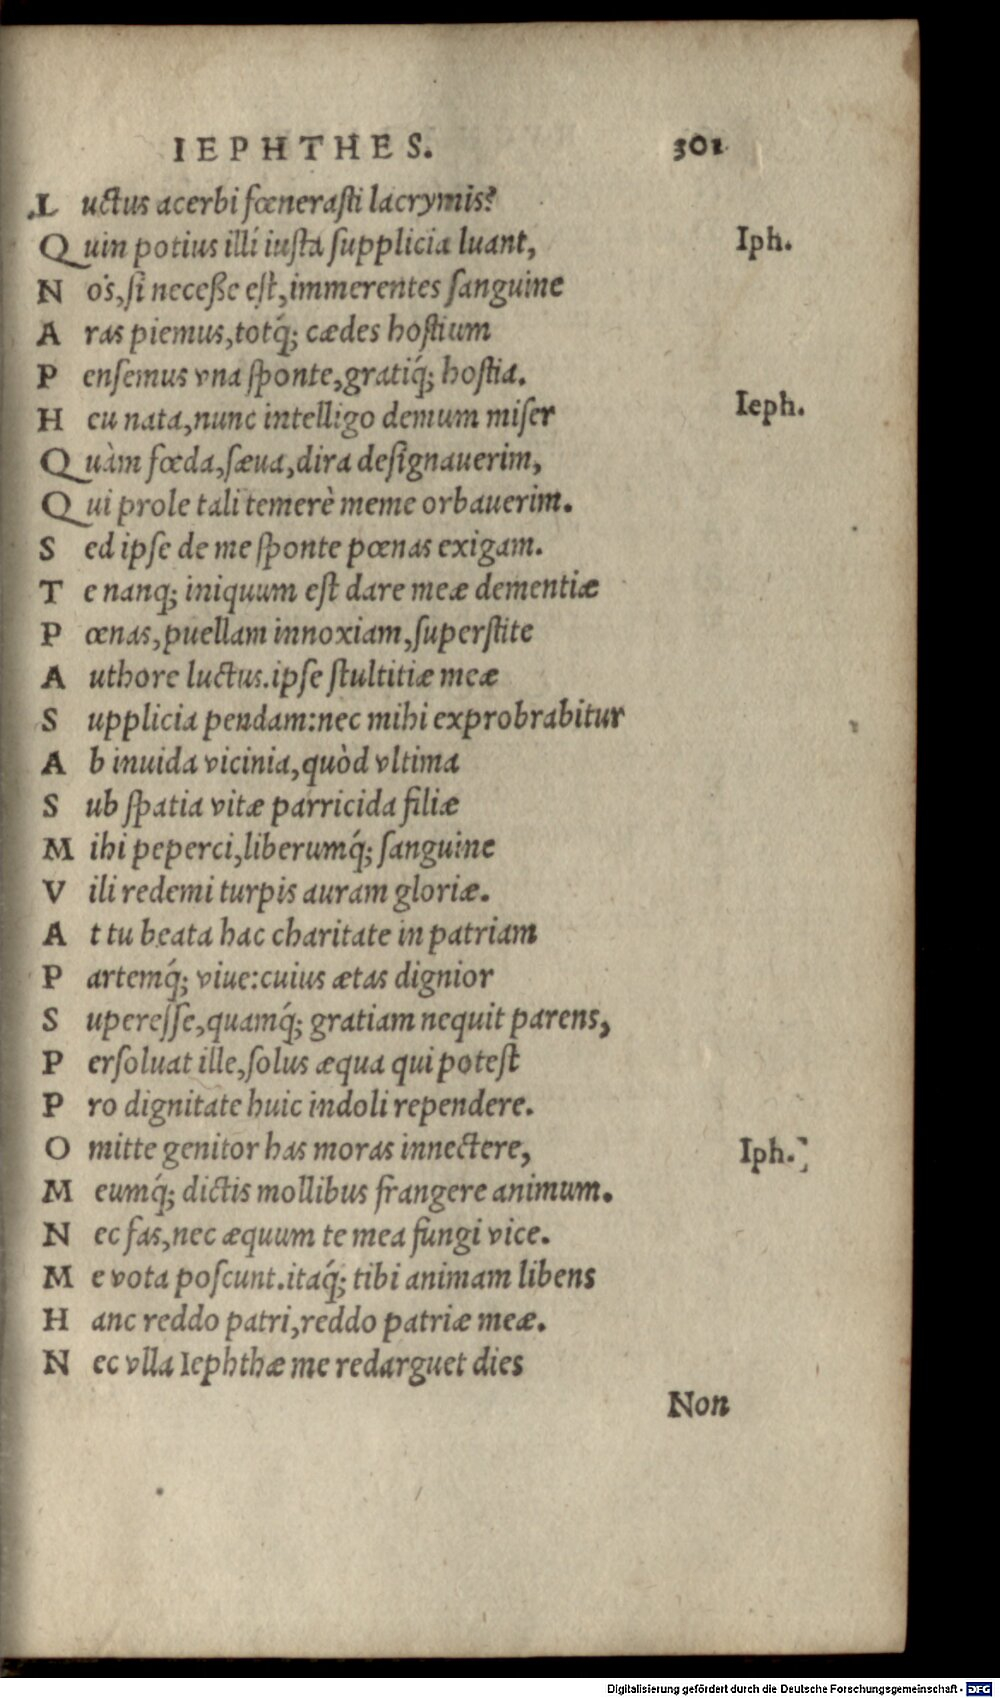 IEPHTHES. 301
Luctus acerbi fœneraſti lacrymis?
Quin potius illi iuſta ſupplicia luant, Iph.
Nos, ſi neceße eſt, immerentes ſanguine
Aras piemus, totq́; cædes hoſtium
Penſemus vna ſponte, gratiq́; hoſtia.
Heu nata, nunc intelligo demum miſer Ieph.
Quàm fœda, ſæua, dira deſignauerim,
Qui prole tali temerè meme orbauerim.
Sed ipſe de me ſponte pœnas exigam.
Te nanq; iniquum eſt dare meæ dementiæ
Pœnas, puellam innoxiam, ſuperſtite
Authore luctus. ipſe ſtultitiæ meæ
Supplicia pendam: nec mihi exprobrabitur
Ab inuida vicinia, quòd vltima
Sub ſpatia vitæ parricida filiæ
Mihi peperci, liberumq́; ſanguine
Vili redemi turpis auram gloriæ.
At tu beata hac charitate in patriam
Partemq́; viue: cuius ætas dignior
Supereſſe, quamq́; gratiam nequit parens,
Perſoluat ille, ſolus æqua qui poteſt
Pro dignitate huic indoli rependere.
Omitte genitor has moras innectere, Iph.
Meumq́; dictis mollibus frangere animum.
Nec fas, nec æquum te mea fungi vice.
Me vota poſcunt. itaq́; tibi animam libens
Hanc reddo patri, reddo patriæ meæ.
Nec vlla Iephthæ me redarguet dies
Non
Digitalisierung gefördert durch die Deutsche Forschungsgemeinschaft - DFG